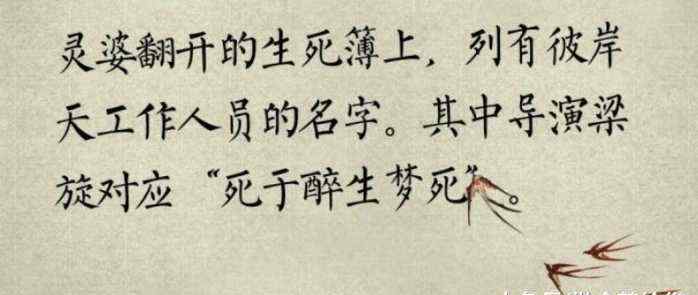 灵婆翻开的生死簿上，列有彼岸
天工作人员的名字。其中导演梁
旋对应“死于醉生梦死”。